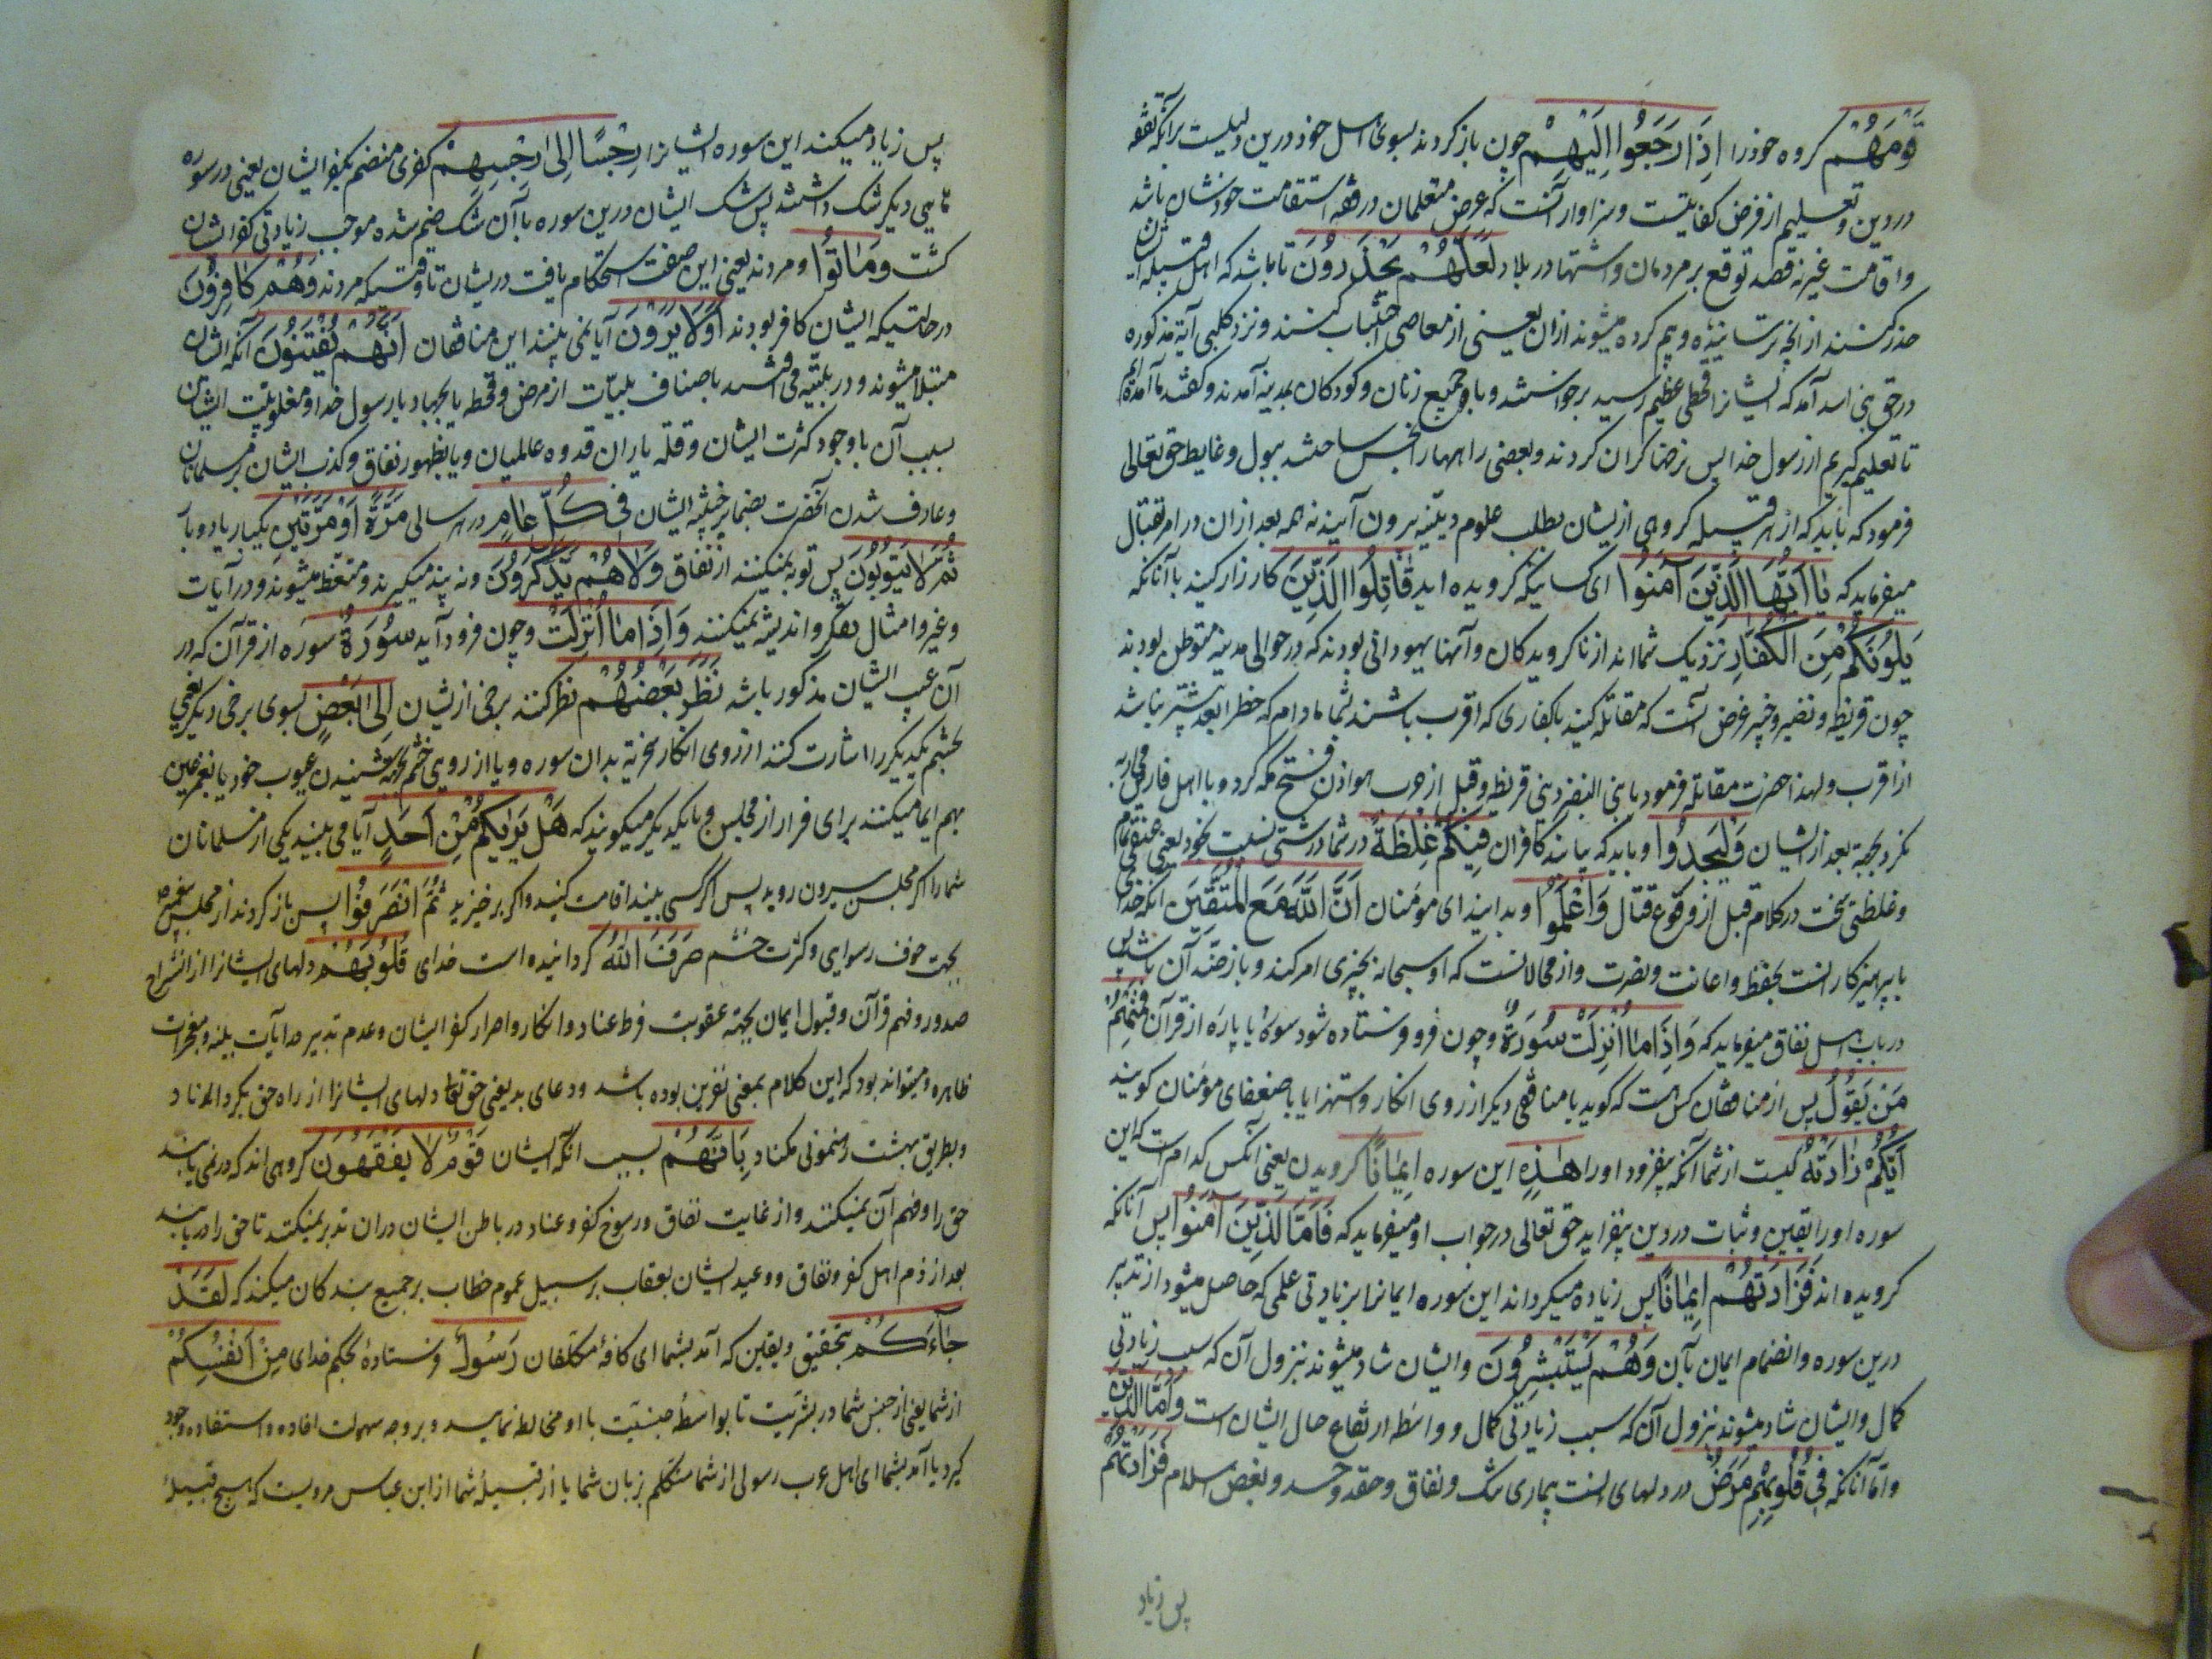 قَوْمَهُمْ کروه خودرا اِذَا رَجَعُوا اِلَیْهِمْ چون باز کردند بسوی اهل خود درین دلیلست برآنکه تفقه
در دین و تعلیم از فرض کفایتست و سزاوار آنست که غرض متعلمان در فقه استقامت خودشان باشد
و اقامت غیر نه قصد توقع بر مردمان و اشتهار در بلاد لَعَلَّهُمْ یَحْذَرُونَ تا باشد که اهل قبیله ایشان
حذر کنند از آنچه ترسانیده و بیم کرده میشوند ازان یعنی از معاصی اجتناب کنند و نزد کلبی آیة مذکوره
در حق بنی اسد آمد که ایشانرا قحطی عظیم رسید برخواستند و با جمیع زنان و کودکان بمدینه آمدند و کفتند ما آمده ایم
تا تعلیم کیریم از رسول خدا پس نرخها کران کردند و بعضی راهها را نجس ساختند ببول و غایط حق تعالی
فرمود که باید که از هر قبیله کروهی ازیشان بطلب علوم دینیه بیرون آیند نه همه بعد ازان در امر بقتال
میفرماید که یٰا اَیُّهَا الَّذِینَ آمَنُوا ای کسانیکه کرویده اید قٰاتِلُوا الَّذِینَ کارزار کنید با آنانکه
یَلُونَکُمْ مِنَ الْکُفّٰارِ نزدیک شمااند از ناکرویدکان و آنها یهودانی بودند که در حوالی مدینه متوطن بودند
چون قریظه و نضیر و خیبر غرض آنست که مقاتله کنید با کفاری که اقرب باشند بشما مادام که خطر ابعد بیشتر نباشد
از اقرب و لهذا حضرت مقاتله فرمود با بنی النضیر و بنی قریظه و قبل از حرب هوازن فتح مکه کرد و با اهل فارس محاربه
نکرد بجهة بعد ازایشان وَلْیَجِدُوا و باید که بیابند کافران فِیکُمْ غِلْظَةً در شما درشتی نسبت بخود یعنی
و غلظتی سخت در کلام قبل از وقوع قتال وَاعْلَمُوا و بدانید ای مؤمنان اَنَّ اللّٰهَ مَعَ الْمُتَّقِینَ آنکه خدای
با پرهیزکارانست بحفظ و اعانت و نصرت و از محالانست که او سبحانه بچیزی امر کند و باز ضد آن باشد پس
در باب اهل نفاق میفرماید که وَاِذَا مٰا اُنْزِلَتْ سُورَةٌ و چون فرو فرستاده شود سورۀ یا پاره از قرآن فَمِنْهُمْ
مَنْ یَقُولُ پس از منافقان کس است که کوید با منافقی دیکر از روی انکار و استهزا یا با ضعفای مؤمنان کویند
اَیُّکُمْ زٰادَتْهُ کیست از شما آنکه بیفزود اورا هٰذِهِ این سوره اِیمٰانًا کرویدن یعنی آنکس کدام است که این
سوره اورا یقین و ثبات در دین بیفزاید حق تعالی در جواب او میفرماید که فَاَمَّا الَّذِینَ آمَنُوا پس آنانکه
کرویده اند فَزٰادَتْهُمْ اِیمٰانًا پس زیاده میکرداند این سوره ایمانرا بزیادتی علمی که حاصل میشود از تدبر
درین سوره و انضمام ایمان بآن وَهُمْ یَسْتَبْشِرُونَ و ایشان شاد میشوند بنزول آن که سبب زیادتی
کمال و ایشان شاد میشوند بنزول آن که سبب زیادتی کمال و واسطه ارتفاع حال ایشان است وَاَمَّا الَّذِینَ
و امّا آنانکه فِی قُلُوبِهِمْ مَرَضٌ در دلهای ایشانست بیماری شک و نفاق و حقد و حسد و بغض اسلام فَزٰادَتْهُمْ
پس زیاد
پس زیاد میکند این سوره ایشانرا رِجْسًا اِلٰی رِجْسِهِمْ کفری منضم بکفر ایشان یعنی در سوره
دیکر شک داشتند پس شک ایشان درین سوره با آن شک ضم شده موجب زیادتی کفر ایشان
کشت وَمَاتُوا و مردند یعنی این صفت استحکام یافت دریشان تا وقتیکه مردند وَهُمْ کَافِرُونَ
در حالتیکه ایشان کافر بودند اَوَلَا یَرَوْنَ آیا نمی بینند این منافقان اَنَّهُمْ یُفْتَنُونَ آنکه ایشان
مبتلا میشوند و در بلیّه می افتند باصناف بلیّات از مرض و قحط یا بجهاد با رسول خدا و مغلوبیت ایشان
بسبب آن با وجود کثرت ایشان و قلة یاران قدوه عالمیان و یا بظهور نفاق و کذب ایشان بر مسلمانان
و عارف شدن آنحضرت بضمایر خبیثه ایشان فِی کُلِّ عٰامٍ در هر سالی مَرَّةً اَوْ مَرَّتَیْنِ یکبار یا دوبار
ثُمَّ لَا یَتُوبُونَ پس توبه نمیکنند از نفاق وَلَا هُمْ یَذَّکَّرُونَ و نه پند میکیرند و متعظ میشوند و در آیات
و غیر و امثال تفکر و اندیشه نمیکنند وَاِذَا مٰا اُنْزِلَتْ و چون فرود آید سُورَةٌ سوره از قرآن که در
آن عیب ایشان مذکور باشد نَظَرَ بَعْضُهُمْ نظر کنند برخی ازیشان اِلٰی بَعْضٍ بسوی برخی دیکر یعنی
بچشم یکدیکر را اشارت کنند از روی انکار سخریة بدان سوره و یا از روی خشم بجهة شنیدن عیوب خود یا بغمز عین
بهم ایما میکنند برای فرار از مجلس و با یکدیکر میکویند که هَلْ یَرٰیکُمْ مِنْ اَحَدٍ آیا می بیند یکی از مسلمانان
شما را اکر مجلس بیرون روید پس اکر کسی بیند اقامت کنید و اکر برخیزید ثُمَّ انْصَرَفُوا پس باز کردند از مجلس پیغمبر
بجهت خوف رسوایی و کثرت خشم صَرَفَ اللّٰهُ کردانیده است خدای قُلُوبَهُمْ دلهای ایشانرا از انشراح
صدور و فهم قرآن و قبول ایمان بجهة عقوبت فرط عناد و انکار و اصرار کفر ایشان و عدم تدبر در آیات بینه و معجزات
ظاهره و میتواند بود که این کلام بمعنی نفرین بوده باشد و دعای بد یعنی حق تعالی دلهای ایشانرا از راه حق بکرداناد
و بطریق بهشت رهنمونی مکناد بِاَنَّهُمْ بسبب آنکه ایشان قَوْمٌ لَا یَفْقَهُونَ کروهی اند که در نمی یابند
حق را و فهم آن نمیکنند و از غایت نفاق و رسوخ کفر و عناد در باطن ایشان دران تدبر نمیکنند تا حق را دریابند
بعد از ذم اهل کفر و نفاق و وعید ایشان بعقاب بر سبیل عموم خطاب بر جمیع بندکان میکند که لَقَدْ
جٰاءَکُمْ بتحقیق و یقین که آمد بشما ای کافۀ مکلفان رَسُولٌ فرستادۀ بحکم خدای مِنْ اَنْفُسِکُمْ
از شما یعنی از جنس شما در بشریت تا بواسطۀ جنسیّت با او مخالطه نمایید و بر وجه سهولت افاده و استفاده وجود
کیرد یا آمد بشما ای اهل عرب رسولی از شما متکلم بزبان شما یا از قبیلۀ شما از ابن عباس مرویست که هیچ قبیلۀ